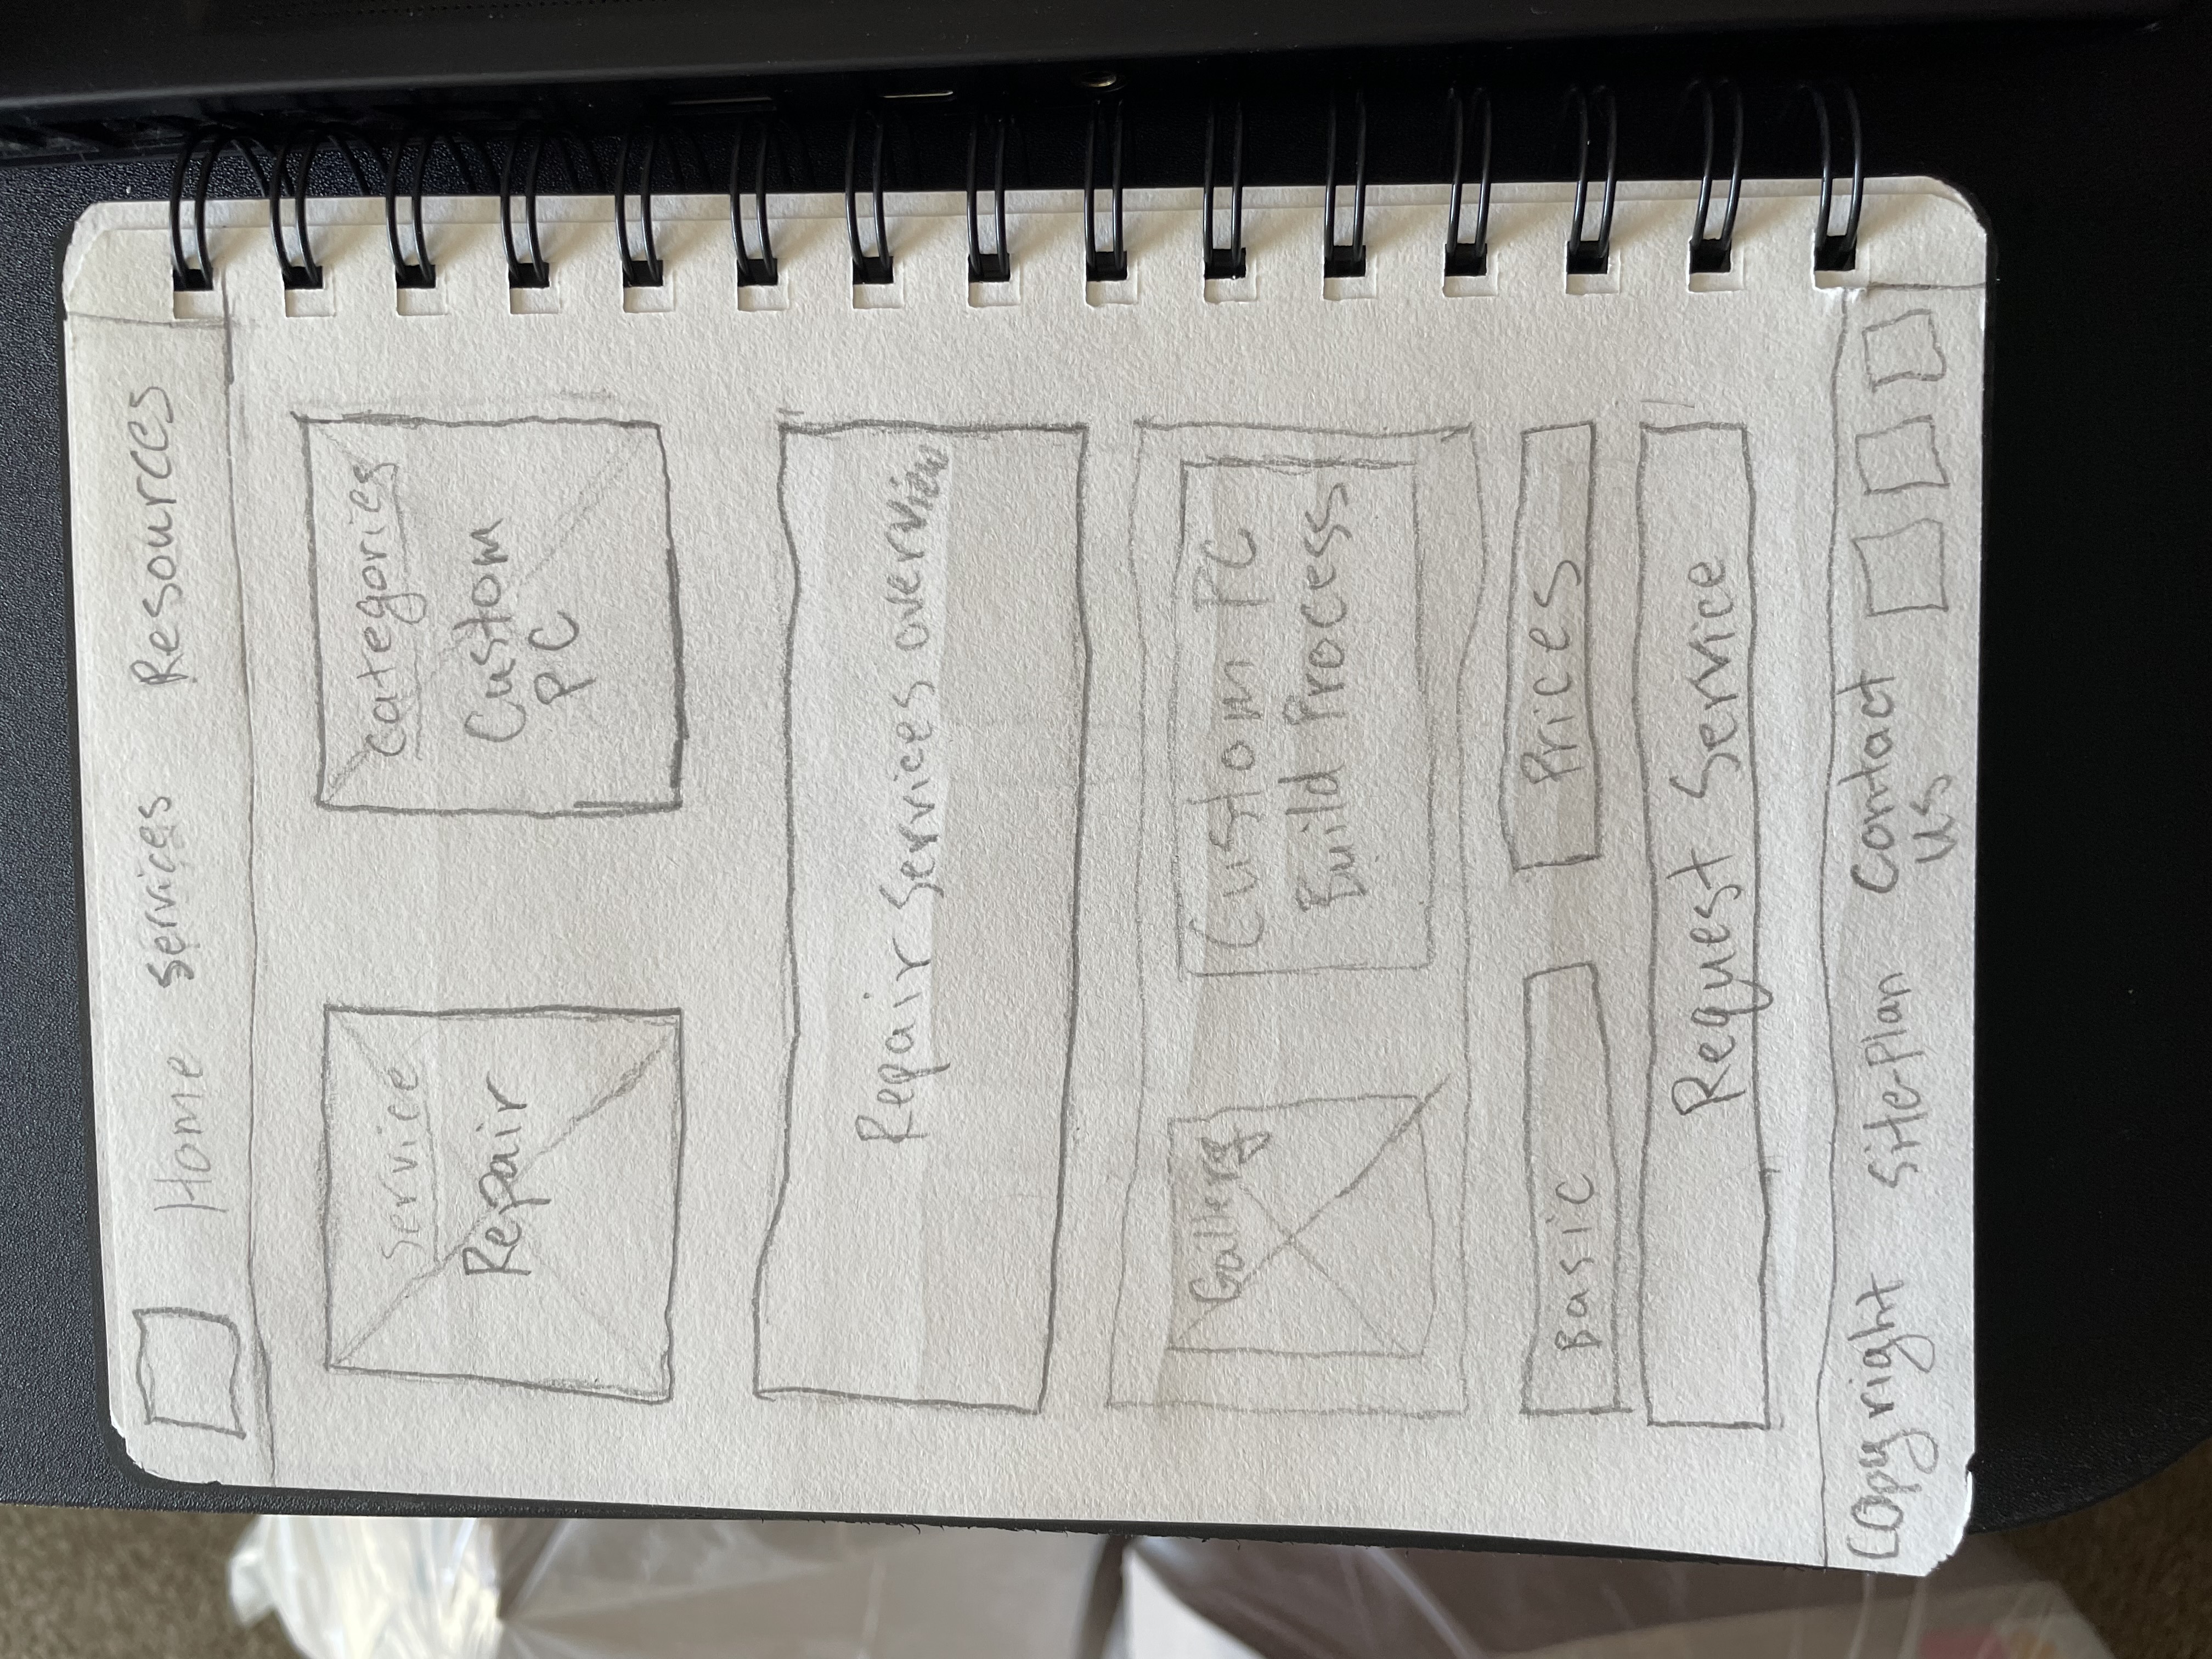 Home Services Resources
Service
Repair
Categories
Custom
PC
Repair Services overview
Gallery
Custom PC
Build Process
Basic
Prices
Request Service
Copyright Site-Plan Contact
us